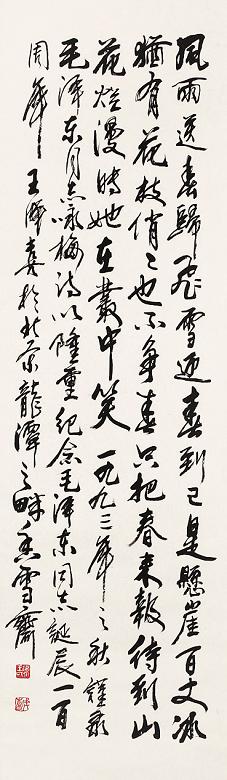 風雨送春歸飛雪迎春到已是懸崖百丈冰
猶有花枝俏俏也不争春只把春来報待到山
花烂漫時她在叢中笑一九九三年之秋謹录
毛泽东同志咏梅詩以隆重纪念毛泽东同志誕辰一百
周年王泽喜於北京龍潭之畔香雪齋